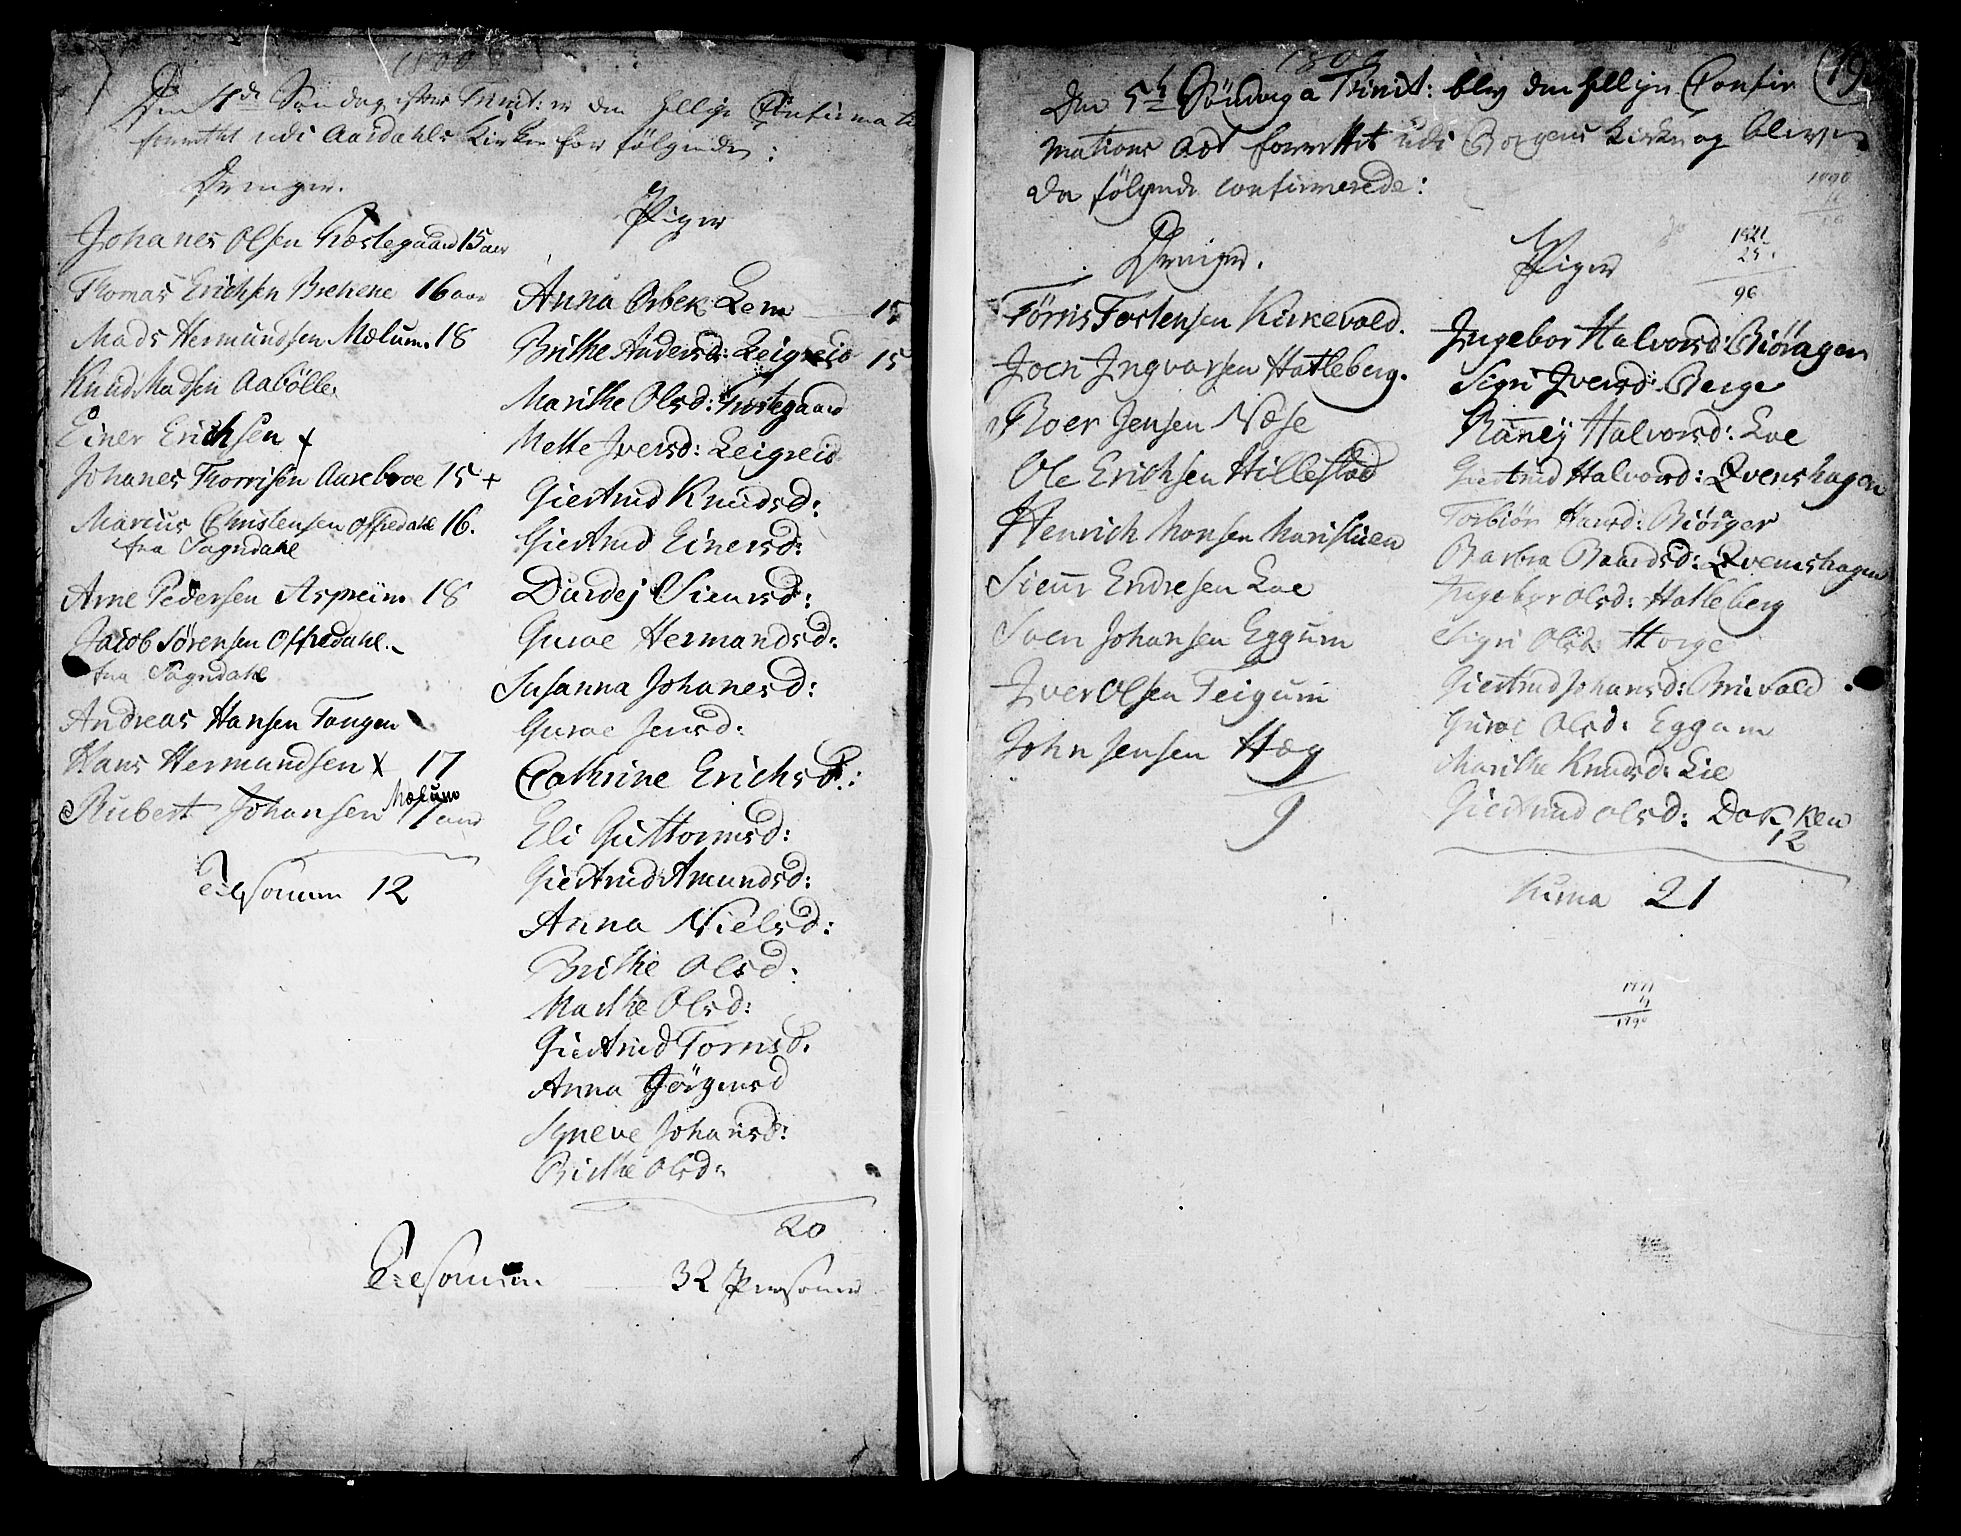 1800
Den 4de Søndag efter Trinit: er den hellige Confirmati
forrettet udi Aardahls Kirke for følgende:
Drenger.
Johanes Olsen Næstegaard 15 aar
Thomas Erichsen Brehene 16 aar
Mads Hermundsen Mælum. 18
Knud Madsen Aabölle
Einer Erichsen x
Johanes Thorrisen Aarebroe 15 +
Marcus Christensen Offredahl 16.
fra Sogndahl
Arne Pedersen Aspeim 18
Jacob Sørensen Offredahl.
fra Sogndahl
Andreas Hansen Tangen
Hans Hermundsen x 17
Mælum
Rubert Johansen 17 aar
Tilsammen 12
Piger
Anna Orbek Lem 15
Brithe Andersd: Leigreid 15
Marithe Olsd: Næstegaard
Mette Iversd: Leigreid
Giertrud Knudsd:
Giertrud Einersd:
Durdej Siursd:
Guroe Hermandsd:
Susanna Johanesd:
Guroe Jensd:
Cathrine Erichsd:
Eli Guttormsd:
Giertrud Amundsd:
Anna Nielsd:
Brithe Olsd:
Marthe Olsd:
Giertrud Tornsd.
Anna Jörgensd
Syneve Johansd:
Brithe Olsd:
20
Tilsammen 32 Personer
1800
19
Den 5te Söndag a Trinit: blev den hellige Confir
mations Act forrettet udi Borgens Kirke og bleve
da følgende confirmerede:
Drenger.
Törris Tostensen Kirkevold.
Joen Ingvarsen Hatleberg.
Roer Jensen Næse
Ole Erichsen Hillestad
Henrich Monsen Maristuen
Sieur Endresen Loe
Sven Johansen Eggum
Iver Olsen Teigum
John Jensen Hæg
9
Piger
Ingebor Halvorsd: Biöragen
Sigri Iversd: Berge
Raney Halvorsd: Loe
Giertrud Halvorsd: Qvenshagen
Torbiör Hansd: Biörger
Barbra Baardsd: Qvemshagen
Ingebor Olsd: Hatleberg
Sigri Olsd: Horge
Giertrud Johansd: Brievold
Guroe Olsd: Eggum
Marithe Knudsd: Lie
Giertrud Olsd: Dokken
12
Suma 21
1790
96
1790